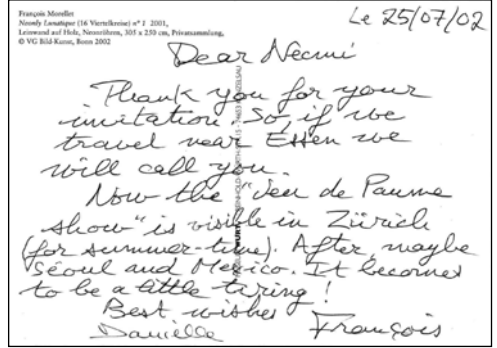 François Morellet
Neonly Lunatique (16 Viertelkreise) n° 1 2001,
Leinwand auf Holz, Neonröhren, 305 x 250 cm, Privatsammlung,
© VG Bild-Kunst, Bonn 2002
Le 25/07/02
Dear Necmi
Thank you for your
invitation. So, if we
travel near Essen we
will call you.
Now the "Jeu de Paume
show" is visible in Zürich
(for summer-time). After, maybe
Séoul and Mexico. It becomes
to be a little tiring!
Best wishes
Danielle François